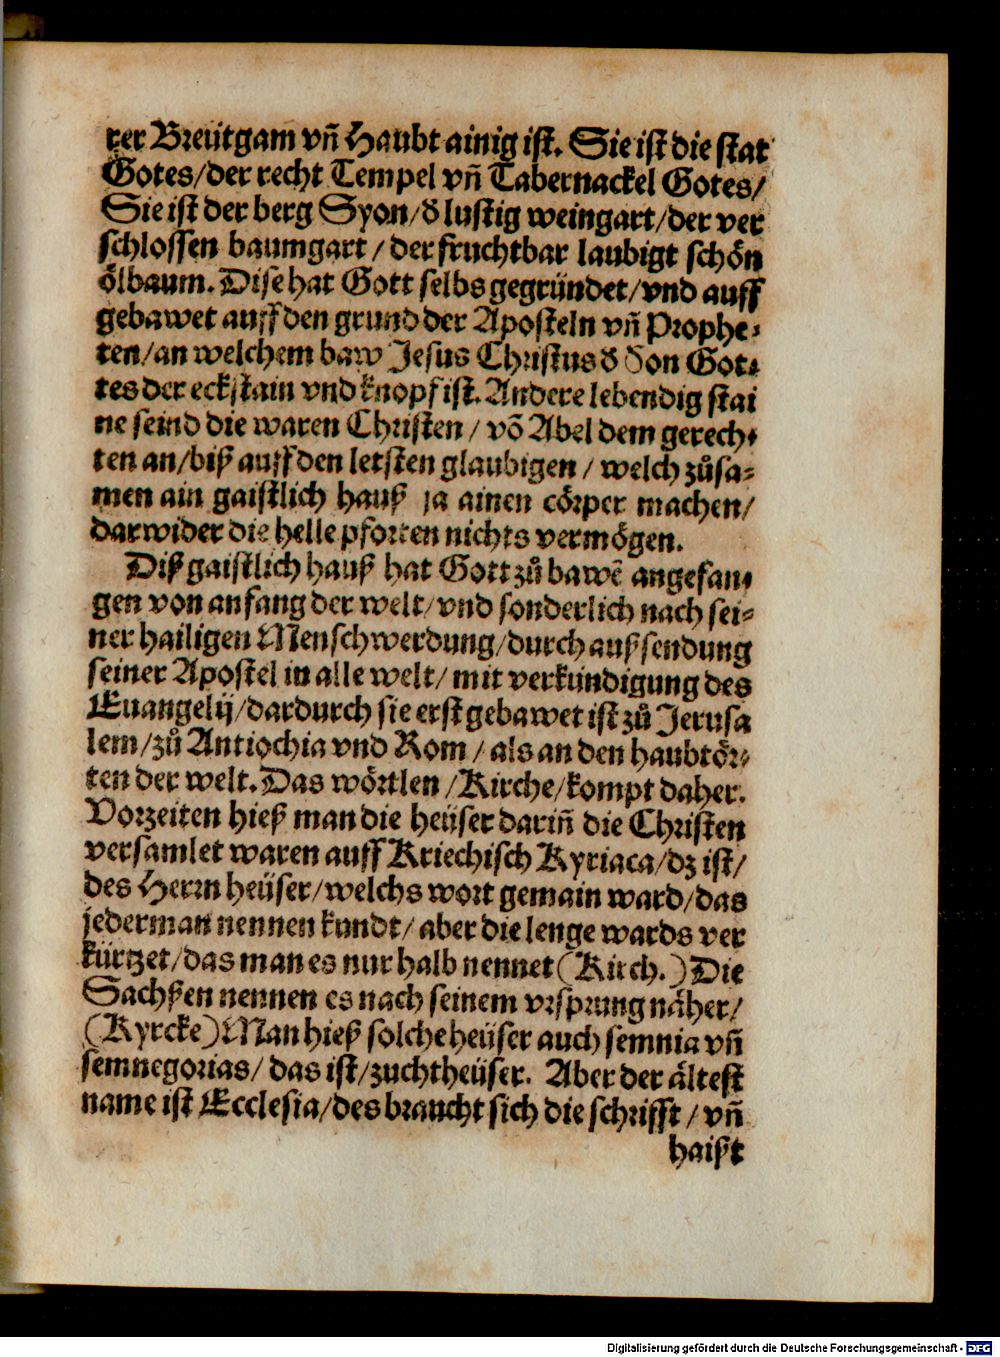 rer Breütgam vñ Haubt ainig ist. Sie ist die stat
Gotes/der recht Tempel vñ Tabernackel Gotes/
Sie ist der berg Syon/d̕ lustig weingart/der ver
schlossen baumgart/der fruchtbar laubigt schön
ölbaum. Dise hat Gott selbs gegründet/vnd auff
gebawet auff den grund der Aposteln vñ Prophe-
ten/an welchem baw Jesus Christus d̕ Son Got-
tes der eckstain vnd knopf ist. Andere lebendig stai
ne seind die waren Christen/võ Abel dem gerech-
ten an/biß auff den letsten glaubigen/welch zůsa-
men ain gaistlich hauß ja ainen cörper machen/
darwider die helle pforten nichts vermögen.
Diß gaistlich hauß hat Gott zů bawẽ angefan-
gen von anfang der welt/vnd sonderlich nach sei-
ner hailigen Menschwerdung/durch außsendung
seiner Apostel in alle welt/mit verkündigung des
Euangelij/dardurch sie erst gebawet ist zů Jerusa
lem/zů Antiochia vnd Rom/als an den haubtör-
ten der welt. Das wörtlen/Kirche/kompt daher.
Vorzeiten hieß man die heüser dariñ die Christen
versamlet waren auff Kriechisch Kyriaca/dz ist/
des Herrn heüser/welchs wort gemain ward/das
jederman nennen kundt/aber die lenge wards ver
kürtzet/das man es nur halb nennet (Kirch.) Die
Sachßen nennen es nach seinem vrsprung näher/
(Kyrcke) Man hieß solche heüser auch semnia vñ
semnegorias/das ist/zuchtheüser. Aber der ältest
name ist Ecclesia/des braucht sich die schrifft/vñ
haißt
Digitalisierung gefördert durch die Deutsche Forschungsgemeinschaft - DFG